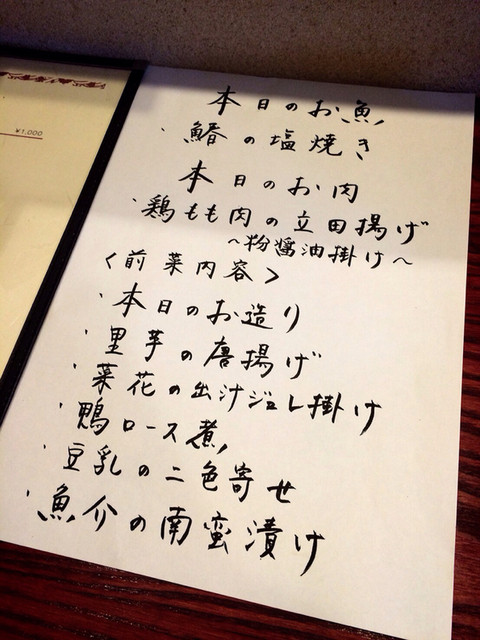 ¥1,000
本日のお魚
・鰆の塩焼き
本日のお肉
・鶏もも肉の立田揚げ
〜粉醤油掛け〜
<前菜内容>
・本日のお造り
・里芋の唐揚げ
・菜花の出汁ジュレ掛け
・鴨ロース煮
・豆乳の二色寄せ
・魚介の南蛮漬け